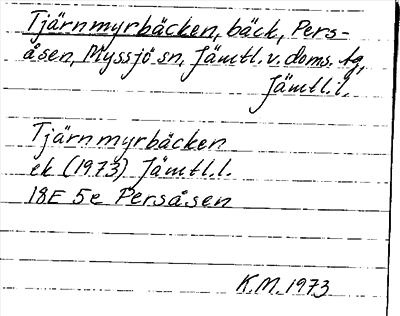 Tjärnmyrbäcken, bäck, Pers-
åsen, Myssjö sn, Jämtl. v. doms. tg,
Jämtl. l.
Tjärnmyrbäcken
ek (1973) Jämtl.l.
18E 5e Persåsen
K.M. 1973